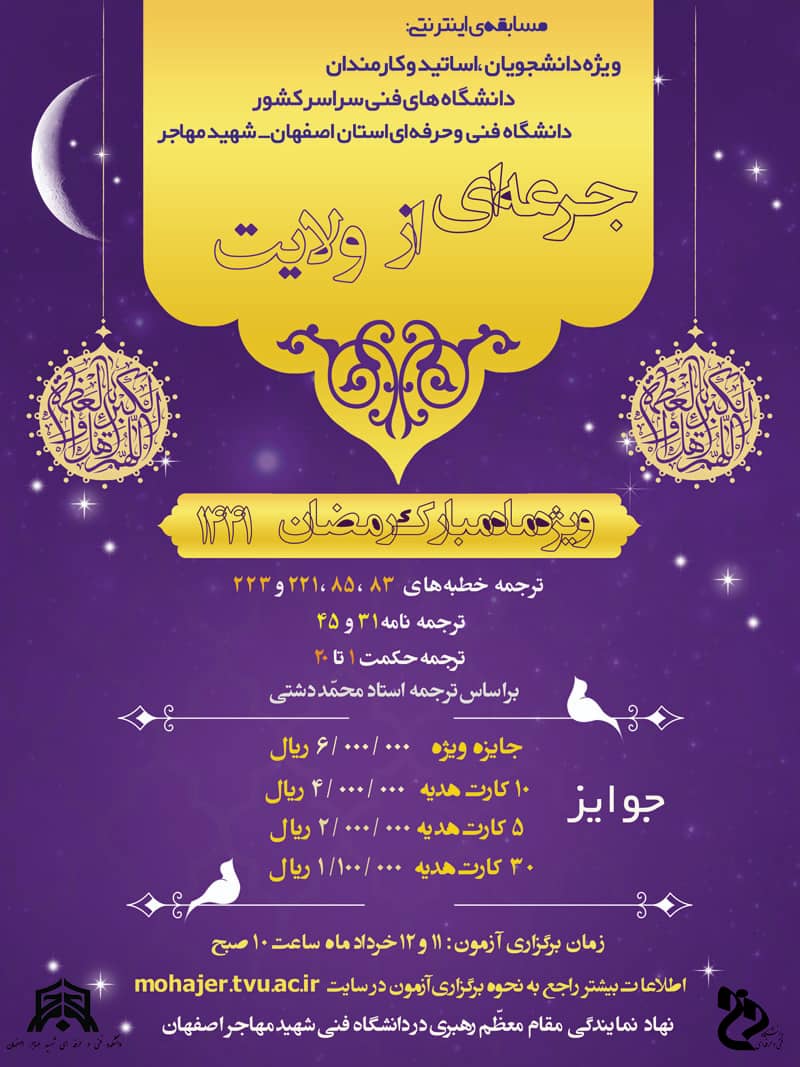 مسابقه‌ی اینترنتی:
ویژه دانشجویان، اساتید و کارمندان
دانشگاه های فنی سراسر کشور
دانشگاه فنی و حرفه ای استان اصفهان - شهید مهاجر
جرعه‌ای از ولایت
ویژه ماه مبارک رمضان ۱۴۴۱
ترجمه خطبه‌های ۸۳ ، ۸۵ ، ۲۲۱ و ۲۲۳
ترجمه نامه ۳۱ و ۴۵
ترجمه حکمت ۱ تا ۲۰
براساس ترجمه استاد محمّد دشتی
جوایز
جایزه ویژه ۶/۰۰۰/۰۰۰ ریال
۱۰ کارت هدیه ۴/۰۰۰/۰۰۰ ریال
۵ کارت هدیه ۲/۰۰۰/۰۰۰ ریال
۳۰ کارت هدیه ۱/۱۰۰/۰۰۰ ریال
زمان برگزاری آزمون : ۱۱ و ۱۲ خرداد ماه ساعت ۱۰ صبح
اطلاعات بیشتر راجع به نحوه برگزاری آزمون در سایت mohajer.tvu.ac.ir
نهاد نمایندگی مقام معظّم رهبری در دانشگاه فنی شهید مهاجر اصفهان